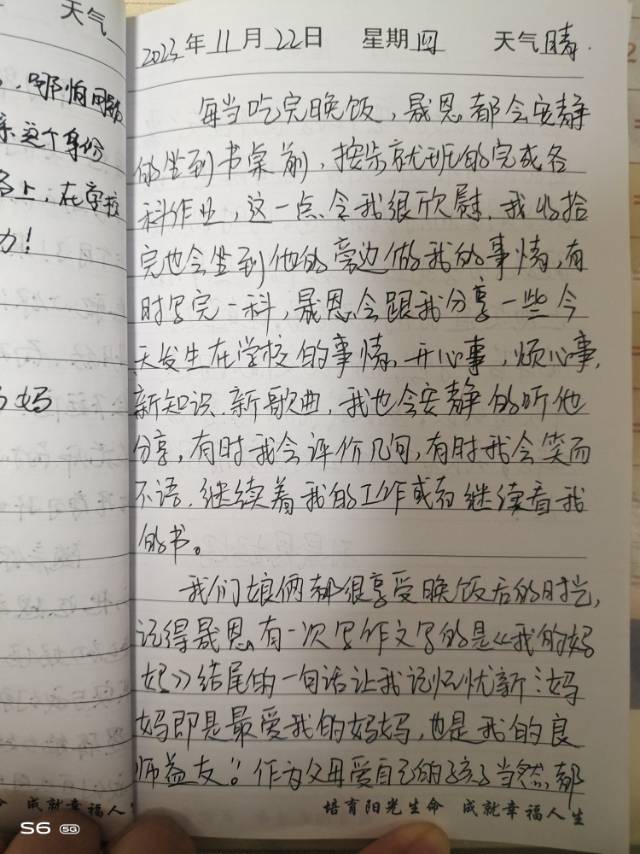 天气
哪怕
这个身份
上,在学校
力!
妈
2023年11月22日 星期四 天气晴.
每当吃完晚饭,晟恩都会安静
的坐到书桌前,按部就班的完成各
科作业,这一点令我很欣慰.我收拾
完也会坐到他的旁边做我的事情,有
时写完一科,晟恩会跟我分享一些今
天发生在学校的事情、开心事,烦心事,
新知识、新歌曲,我也会安静的听他
分享,有时我会评价几句,有时我会笑而
不语.继续着我的工作或者继续看我
的书。
我们娘俩都很享受晚饭后的时光,
记得晟恩有一次写作文写的是《我的妈
妈》结尾的一句话让我记忆忧新:妈
妈即是最爱我的妈妈,也是我的良
师益友"。作为父母爱自己的孩子当然都
命 成就幸福人生
培育阳光生命 成就幸福人生
S6 5G